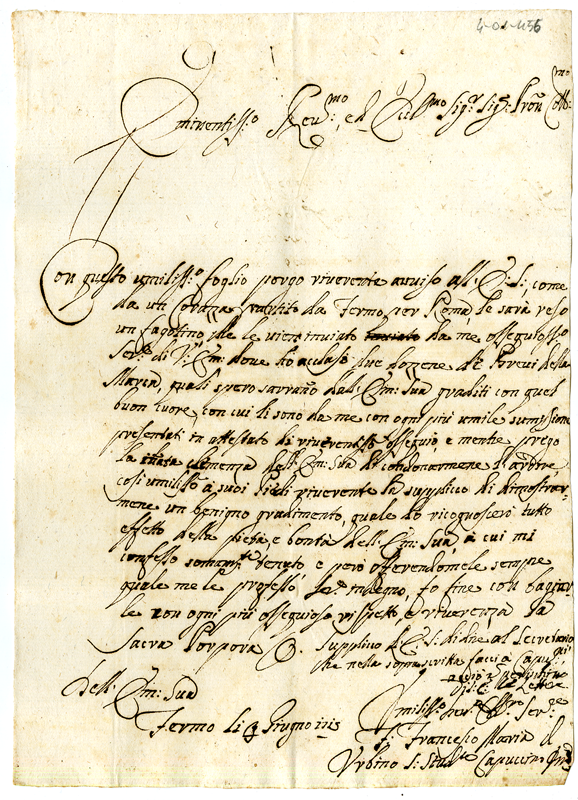 4-01-456
Eminentiss.o Reu.mo ed Ecc.mo Sig.r Sig.r Pron
Con questo umiliss.o foglio porgo riverente auuiso all' E: S: come
da un partito da Fermo per Roma, le sarà reso
un fagotino, che le vien inuiato da me ossequiosso
Ser.e di V: Em: doue ho accluso due dozzene di Breui della
Marca, quali spero sarrano dall' Em: Sua graditi con quel
buon cuore, con cui li sono da me con ogni più umile sumissione
presentati in attestato di riverentiss.o ossequio, e mentre prego
la innata clemenza dell' Em: Sua di condonarmene l'ardire
così umiliss.o a suoi Piedi riverente la supplico di dimostrar-
mene un benigno gradimento, quale lo ricognoscierò tutto
effetto della pietà e bontà dell' Em: Sua, a cui mi
confesso somam.te tenuto, e però offerendomele sempre
quale me le professo, Ser.e indegno, fo fine con bagiar-
le con ogni più ossequioso rispetto, e riverenza la
Sacra Porpora Supplico l' E: S: di dire al Secretario
che nella soprascritta faccia Capu.ni
Dell' Em: Sua
Umiliss.o Ser.e
Fermo li Giugno
F. Francesco Maria d'
Urbino S: Stud.te Capuccino